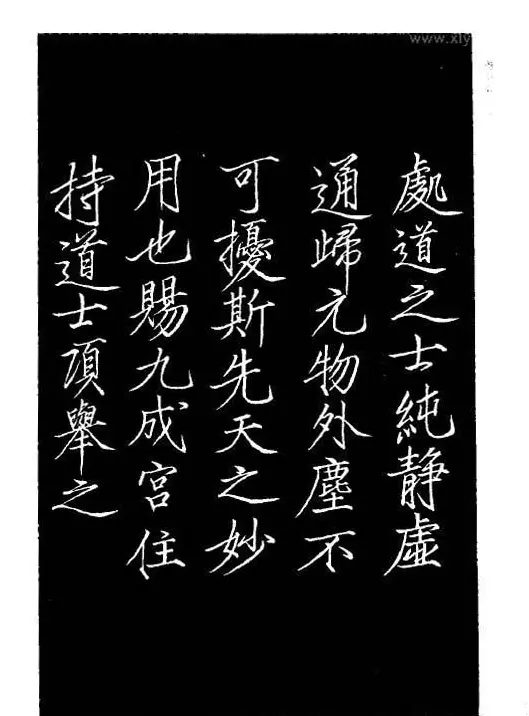 www.xly
處道之士純静虛
通歸元物外塵不
可擾斯先天之妙
用也賜九成宮住
持道士項舉之